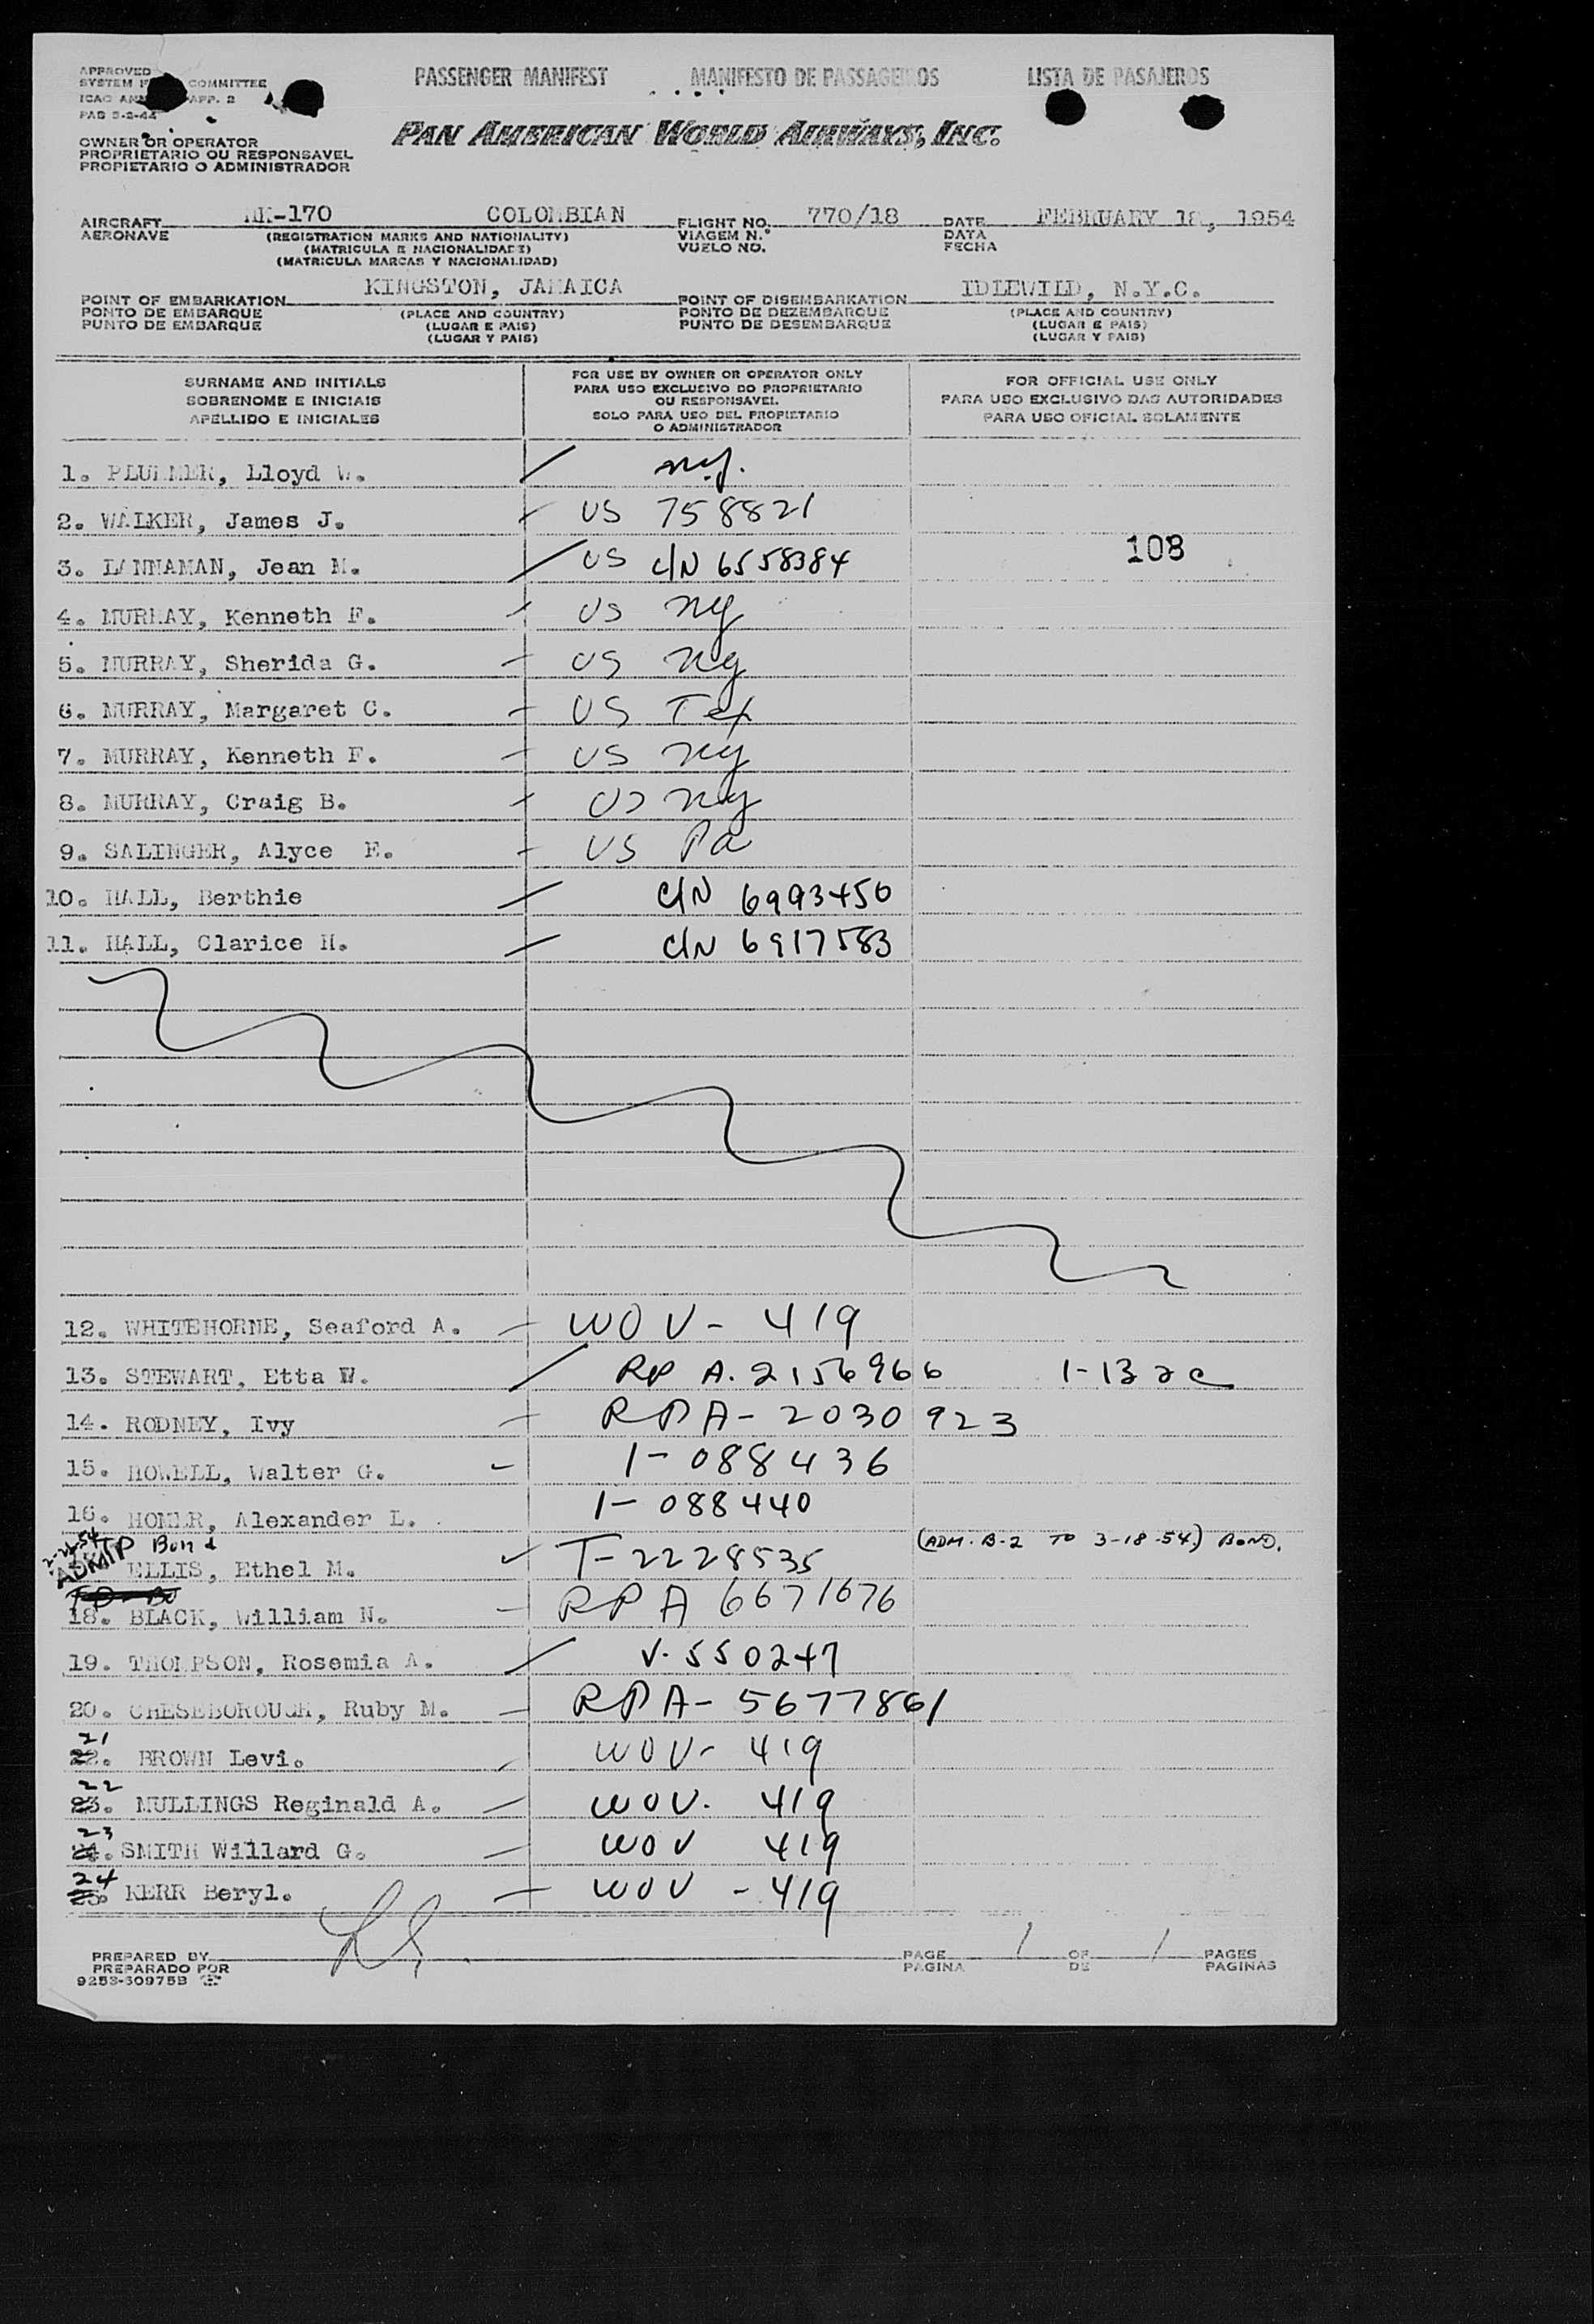 APPROVED
SYSTEM COMMITTEE
ICAO APP. 2
PAB 5-2-44
PASSENGER MANIFEST MANIFESTO DE PASSAGEIROS LISTA DE PASAJEROS
PAN AMERICAN WORLD AIRWAYS, INC.
OWNER OR OPERATOR
PROPRIETARIO OU RESPONSAVEL
PROPIETARIO O ADMINISTRADOR
AIRCRAFT HK-170 COLOMBIAN FLIGHT NO. 770/18 DATE FEBRUARY 18, 1954
AERONAVE (REGISTRATION MARKS AND NATIONALITY) VIAGEM N.° DATA
(MATRICULA E NACIONALIDADE) VUELO NO. FECHA
(MATRICULA MARCAS Y NACIONALIDAD)
POINT OF EMBARKATION KINGSTON, JAMAICA POINT OF DISEMBARKATION IDLEWILD, N.Y.C.
PONTO DE EMBARQUE (PLACE AND COUNTRY) PONTO DE DEZEMBARQUE (PLACE AND COUNTRY)
PUNTO DE EMBARQUE (LUGAR E PAIS) PUNTO DE DESEMBARQUE (LUGAR E PAIS)
(LUGAR Y PAIS) (LUGAR Y PAIS)
SURNAME AND INITIALS
SOBRENOME E INICIAIS
APELLIDO E INICIALES
FOR USE BY OWNER OR OPERATOR ONLY
PARA USO EXCLUSIVO DO PROPRIETARIO
OU RESPONSAVEL
SOLO PARA USO DEL PROPIETARIO
O ADMINISTRADOR
FOR OFFICIAL USE ONLY
PARA USO EXCLUSIVO DAS AUTORIDADES
PARA USO OFICIAL SOLAMENTE
1. PLUMMER, Lloyd W. ny.
2. WALKER, James J. US 758821
3. LANNAMAN, Jean M. US C/N 6558384 108
4. MURRAY, Kenneth F. US ny
5. MURRAY, Sherida G. US ny
6. MURRAY, Margaret C. US Tex
7. MURRAY, Kenneth F. US ny
8. MURRAY, Craig B. US ny
9. SALINGER, Alyce E. US Pa
10. HALL, Berthie C/N 6993450
11. HALL, Clarice H. C/N 6917583
12. WHITEHORNE, Seaford A. WOV- 419
13. STEWART, Etta W. RP A.2156966 1-13 2c
14. RODNEY, Ivy RPA-2030923
15. HOWELL, Walter G. 1-088436
16. HOMER, Alexander L. 1-088440
ADMTP Bond
ELLIS, Ethel M. T-2228535 (ADM. B-2 TO 3-18-54.) BOND.
18. BLACK, William N. RPA 6671676
19. THOMPSON, Rosemia A. V-550247
20. CHESEBOROUGH, Ruby M. RPA-5677861
21 22. BROWN Levi. WOV- 419
22 23. MULLINGS Reginald A. WOV. 419
23 24. SMITH Willard G. WOV 419
24 25. KERR Beryl. WOV - 419
PREPARED BY PAGE 1 OF 1 PAGES
PREPARADO POR PAGINA DE PAGINAS
9253-30975B